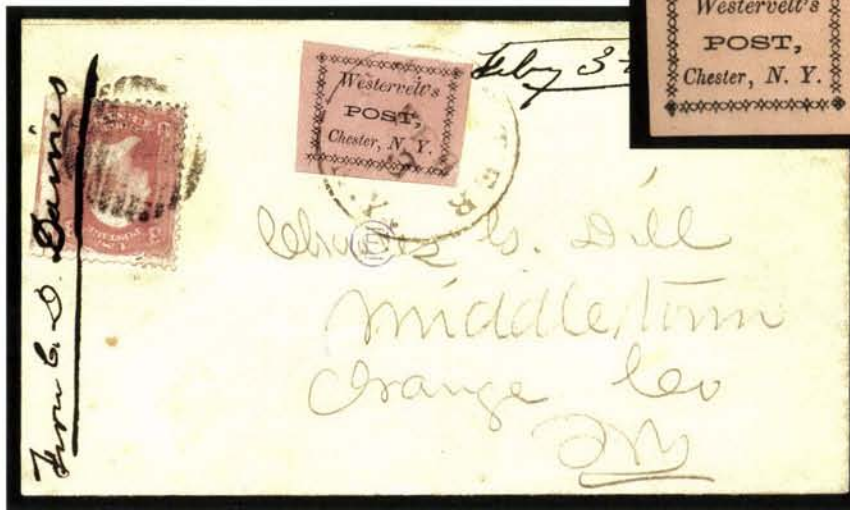 Westervelt's
POST,
Chester, N. Y.
From C. D. Gaines
Westervelt's
POST,
Chester, N. Y.
Feby 3
TER
N.Y.
Charles G. Dill
Middletown
Orange Co
NY